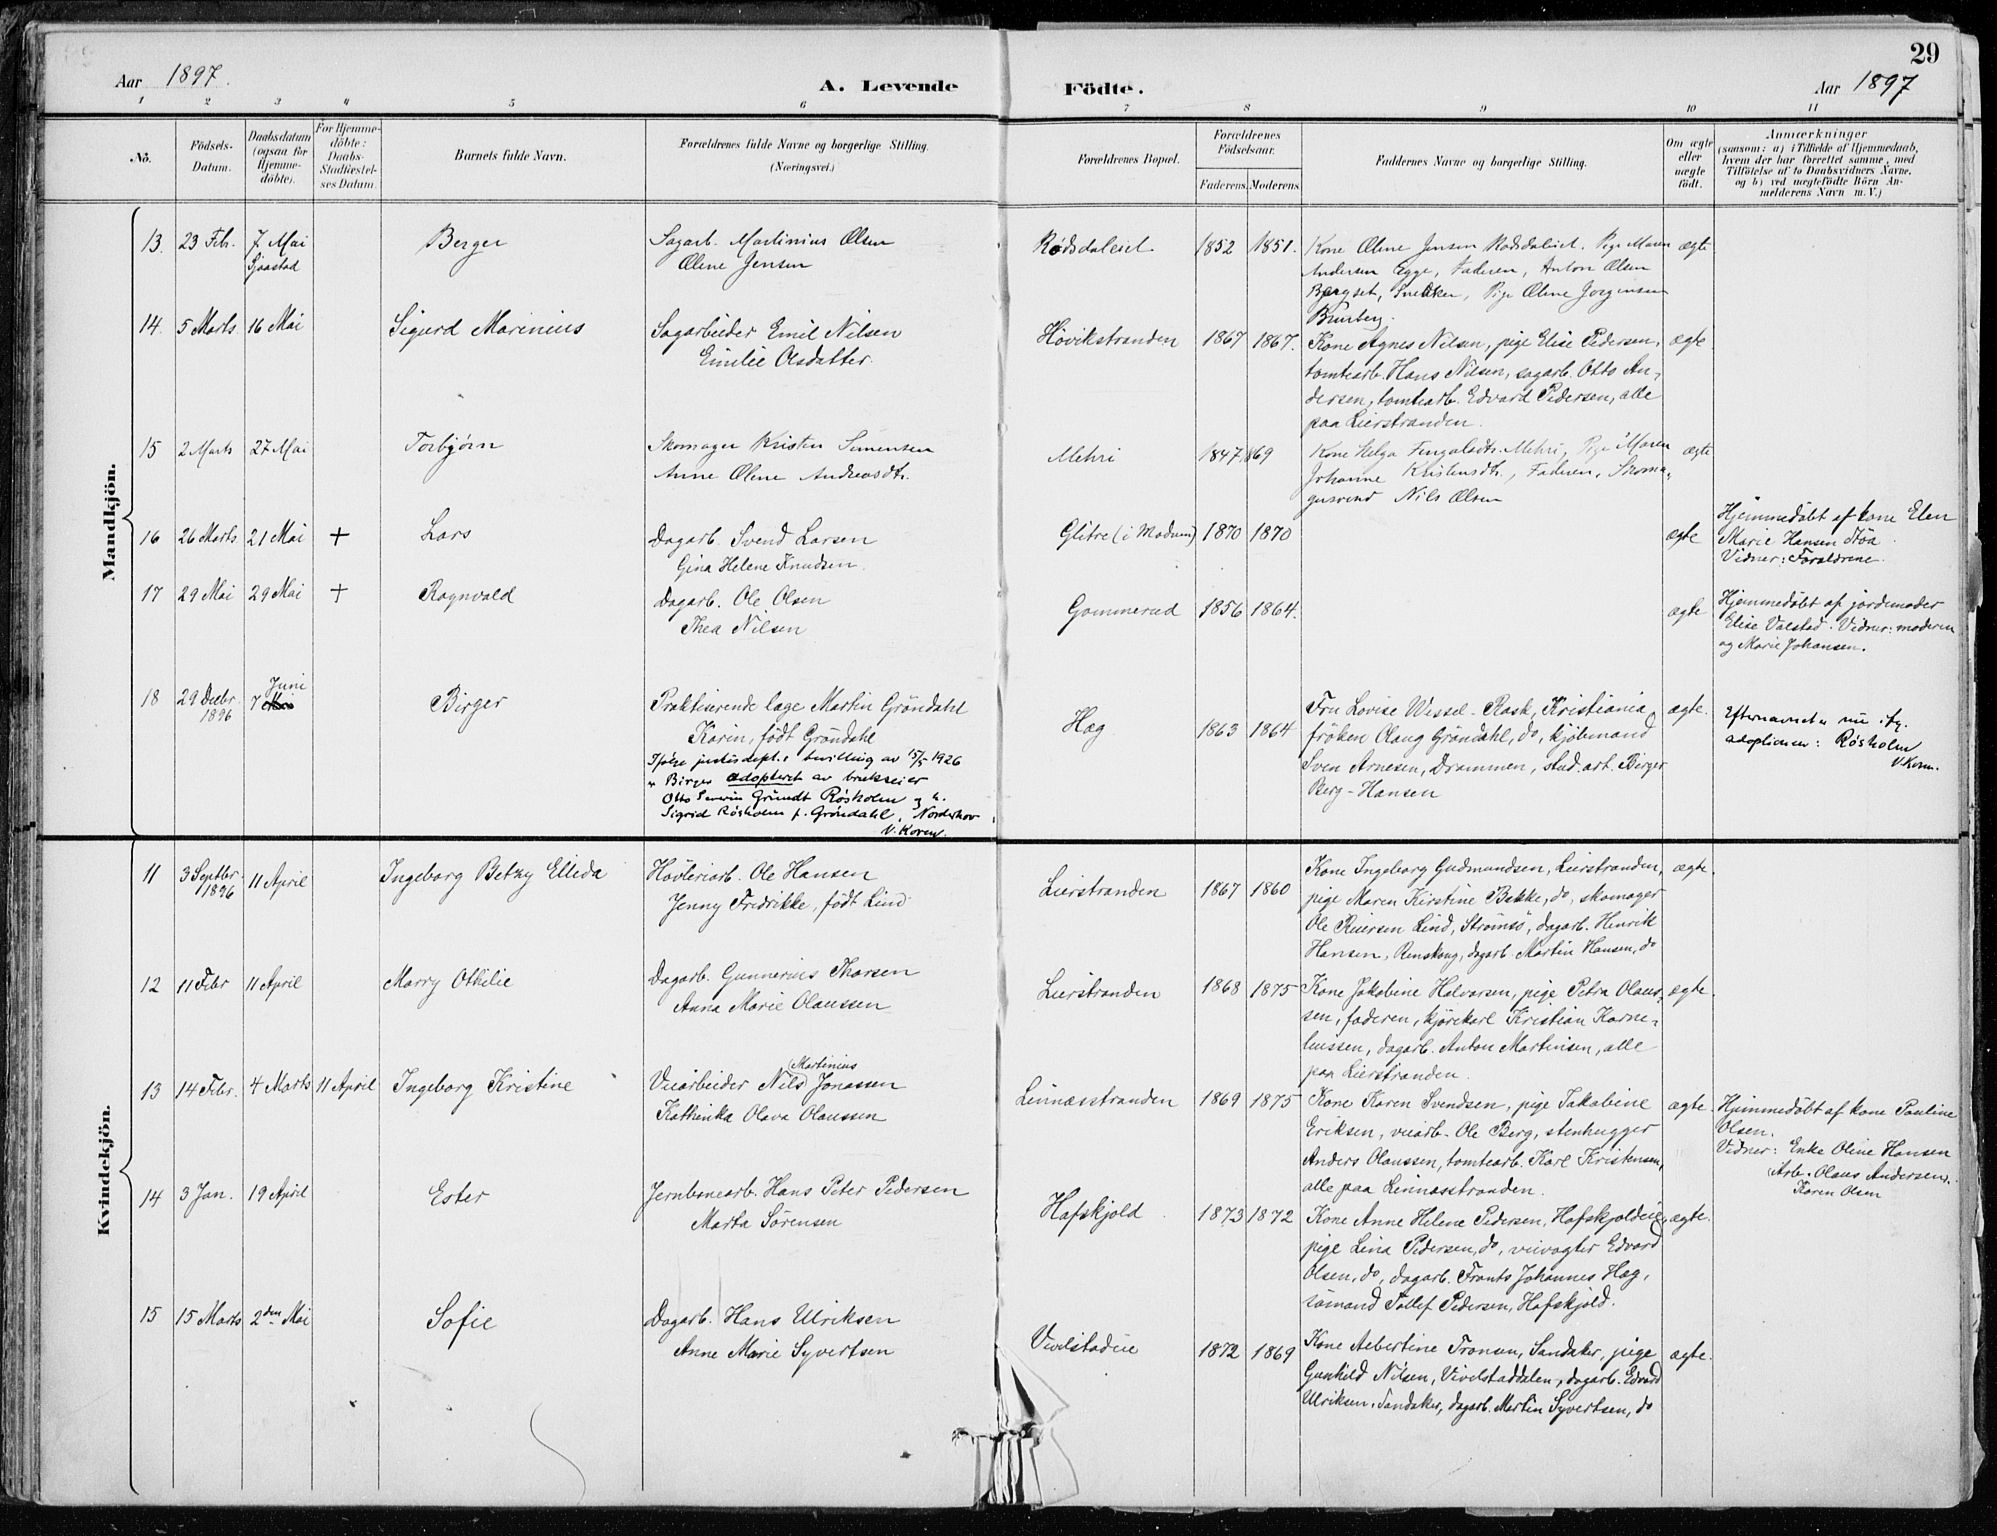 29
Aar 1897.
A. Levende Födte.
Aar 1897
1 2 3 4 5 6 7 8 9 10 11
No.
Födsels-Datum.
Daabsdatum (ogsaa for Hjemme-döbte).
For Hjemme-döbte: Daabs-Stadfæstel-ses Datum.
Barnets fulde Navn.
Forældrenes fulde Navne og borgerlige Stilling.
(Næringsvei.)
Forældrenes Bopæl.
Forældrenes Födselsaar.
Faderens. Moderens.
Faddernes Navne og borgerlige Stilling.
Om ægte eller uægte født.
Anmærkninger
(saasom: a) i Tilfælde af Hjemmedaab,
hvem der har forrettet samme, med
Tilföielse af to Daabsvidners Navne.
og b) ved uægtefödte Börn An-
melderens Navn m. V.)
Mandkjön.
13. 23 Febr. 7 Mai Sjaastad Berger Sagarb. Martinius Olsen
Oline Jensen
Rødsdalset 1852 1851. Kone Oline Jensen Rødsdalset. Pige Maren ægte
Andersen Egge, Faderen, Anton Olsen
Bergset, Snedker, Pige Oline Jørgensen
14. 5 Marts 16 Mai Sigurd Marinius Sagarbeider Emil Nilsen
Emilie Olsdatter.
Høvikstranden 1867 1867. Kone Agnes Nilsen, pige Elise Pedersen, ægte
tomtearb. Hans Nilsen, sagarb. Otto An-
dersen, tomtearb. Edvard Pedersen, alle
paa Lierstranden.
15 2 Marts 27 Mai Torbjørn Skomager Kristen Simensen
Anne Oline Andreasdtr.
Mehri 1847 1869 Kone Helga Mehri, Pige Maren ægte
Johanne Kristensdtr., Faderen, Skoma-
gersvend Nils Olsen
16 26 Marts 21 Mai + Lars Dagarb. Svend Larsen
Gina Helene Knudsen.
Glitre (i Modum) 1870 1870 ægte
Hjemmedøbt af kone Elen
Marie Hansen Støa.
Vidner: Forældrene.
17 29 Mai 29 Mai + Ragnvald Dagarb. Ole Olsen
Thea Nilsen
Gommerud 1856 1864. ægte
Hjemmedøbt af jordemoder
Elise Valstad. Vidner: moderen
og Marie Johansen.
18 29 Decbr. 1896 7 Juni Birger Praktiserende læge Martin Gröndahl
Karin, født Gröndahl
Ifølge justisdept.s bevilling av 15/5 1926
er Birger adopteret av brukseier
Otto Severin Gründt Røsholm og h.
Sigrid Røsholm f. Gröndahl, Norderhov
V. Koren.
Hæg 1863 1864 Fru Lovise Wessel-Rask, Kristiania, ægte.
frøken Olaug Gröndahl, do, kjøbmand
Sven Arnesen, Drammen, stud. art. Birger
Berg-Hansen
Efternavnet er nu ifg.
adoptionen: Røsholm
V. Koren.
Kvindekjön.
11 3 Septbr. 1896 11 April Ingeborg Betzy Ellida Høvleriarb. Ole Hansen
Jenny Fredrikke, født Lind
Lierstranden 1867 1860 Kone Ingeborg Gudmundsen, Lierstranden, ægte.
pige Maren Kirstine Bakke, do, skomager
Ole Reiersen Lind, Strømsø, dagarb. Henrik
Hansen, Renskoug, dagarb. Martin Hansen, do
12 11 Febr 11 April Marry Othilie Dagarb. Gunnerius Thorsen
Anna Marie Olaussen
Lierstranden 1868 1875 Kone Jakobine Halvorsen, pige Petra Olaus- ægte.
sen, faderen, kjørekarl Kristian Korne-
liussen, dagarb. Anton Martinsen, alle
paa Lierstranden.
13 14 Febr. 4 Marts 11 April Ingeborg Kristine Veiarbeider Nils (Martinius) Jonassen
Kathinka Olava Olaussen
Linnæsstranden 1869 1875 Kone Karen Svendsen, pige Jakobine ægte.
Eriksen, veiarb. Ole Berg, stenhugger
Anders Olaussen, tomtearb. Karl Kristensen,
alle paa Linnæsstranden.
Hjemmedøbt af kone Pauline
Olsen.
Vidner: Enke Oline Hansen
Arb. Olaus Andersen.
Karen Olsen
14 3 Jan. 19 April Ester Jernbanearb. Hans Peter Pedersen
Marta Sörensen
Hafskjold 1873 1872 Kone Anne Helene Pedersen, Hafskjoldeie, ægte.
pige Lina Pedersen, do, veivogter Edvard
Olsen, do, dagarb. Frants Johannes Hæg,
sömand Tollef Pedersen, Hafskjold.
15 15 Marts 2den Mai Sofie Dagarb. Hans Ulriksen
Anne Marie Syvertsen
Vivelstadeie 1872 1869 Kone Aebertine Tronsen, Sandaker, pige ægte.
Gunhild Nilsen, Vivelstaddalen, dagarb. Edvard
Ulriksen, Sandaker, dagarb. Martin Syvertsen, do